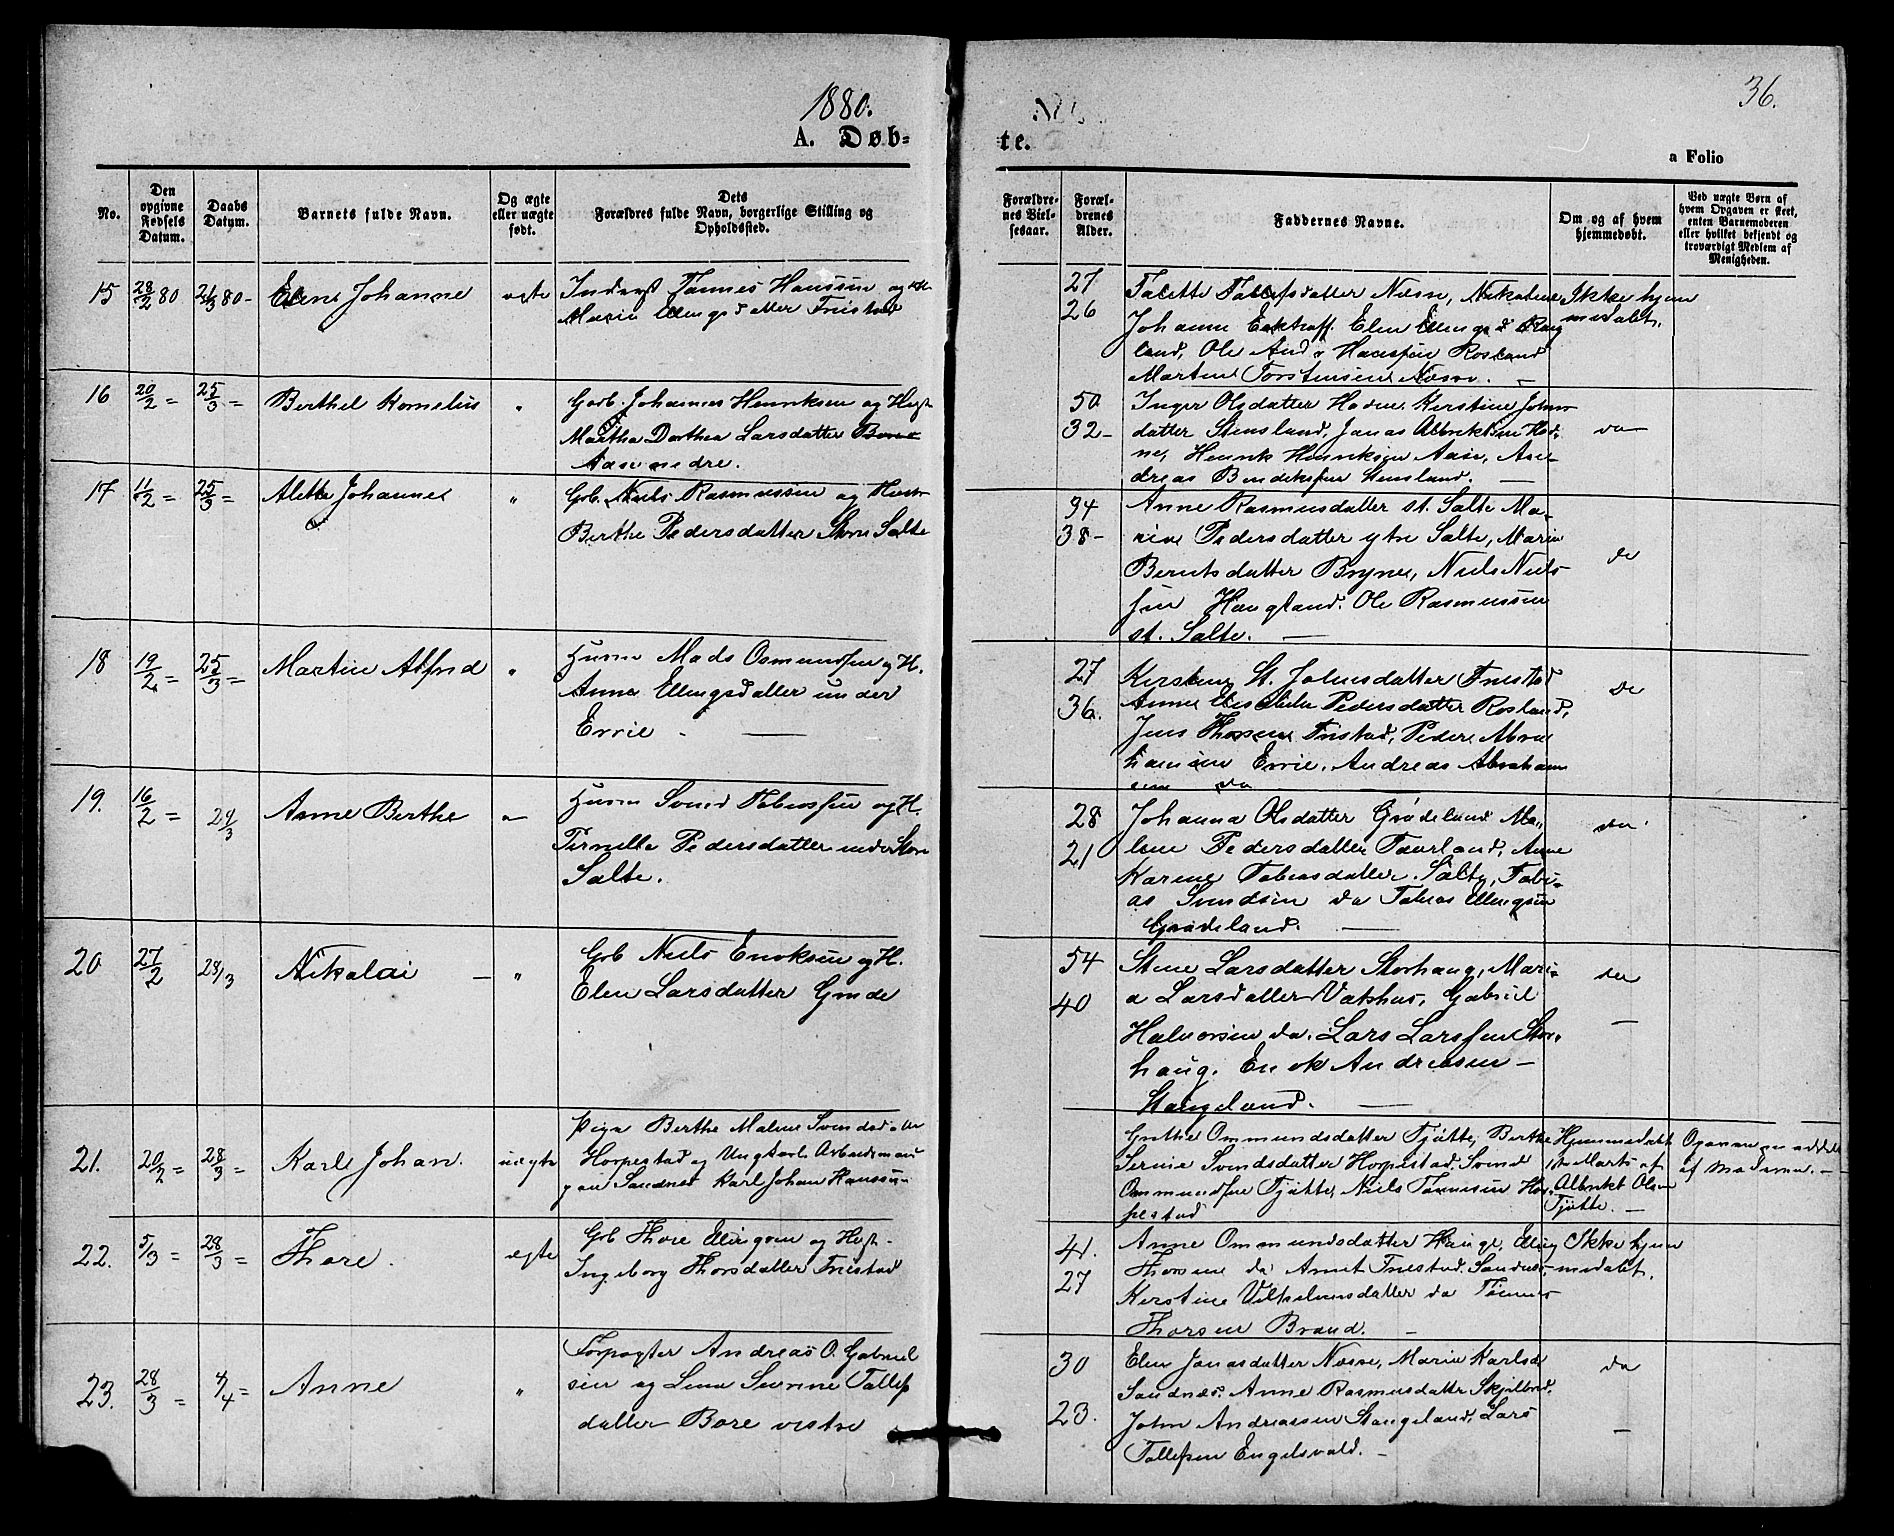 1880.
36.
A. Døb-
te.
a Folio
No.
Den opgivne Fødsels Datum.
Daabs Datum.
Barnets fulde Navn.
Og ægte eller uægte født.
Dets Forældres fulde Navn, borgerlige Stilling og Opholdssted.
Forældrenes Vielsesaar.
Forældrenes Alder.
Faddernes Navne.
Om og af hvem hjemmedøbt.
Ved uægte Børn af hvem Opgaven er skeet, enten Barnemoderen eller hvilket bekjendt og troværdigt Medlem af Menigheden.
15 28/2 80 21/3 80- Elene Johanne ægte
Tønnes Hanssen og
Marie Ellingsdatter Friestad
27
26
Talette Tollefsdatter Næsse, Nikoline
Johanne Elen Ellingsd
land, Ole And Hanssen Rosland
Martin Torstensen Næsse. -
Ikke hjem
medøbt.
16 20/2 = 25/3 = Berthel Kornelius "
Gårb. Johannes Henriksen og Hust
Martha Dorthea Larsdatter Bore
Aase nedre.
50
32-
Inger Olsdatter Hodne, Kerstine Johns
datter Stensland, Jonas Albriktsen Hod
ne, Henrik Henriksen Aase, An-
dreas Bendiksen Stensland. -
da
17 11/2 = 25/3 = Alette Johanne "
Gb. Niels Rasmussen og Hust
Berthe Pedersdatter Store Salte
34
38-
Anne Rasmusdatter st. Salte Ma-
rine Pedersdatter ytre Salte, Marie
Berntsdatter Bryne, Niels Niels
sen Haugland. Ole Rasmussen
st. Salte. -
do
18 19/2 = 25/3 = Martin Alfred "
Husm Mads Osmundsen og H.
Anna Ellingsdatter under
Errie -
27
36.
Kirsten St. Johnsdatter Friestad
Anne Elisabeth Pedersdatter Rosland,
Jens Thorsen Friestad, Peder Abra
hamsen Errie. Andreas Abraham
sen do
do
19. 16/2 = 29/3 Anne Berthe "
Husm Svend Tobiassen og H.
Pernille Pedersdatter under Store
Salte.
28
21
Johanna Olsdatter Grødeland Ma-
lene Pedersdatter Taarland, Anne
Karine Tobiasdatter Salte, Tobi-
as Svendsen do Tobias Ellingsen
Grødeland. -
do
20 27/2 28/3 Nikolai - "
Gb Niels Enoksen og H.
Elen Larsdatter Grude
54
40
Stine Larsdatter Storhaug, Mari-
a Larsdatter Vatshus, Gabriel
Halvorsen do. Lars Larssen Stor-
haug. Enok Andreasen -
Stangeland. -
do
21. 20/2 = 28/3 = Karl Johan. uægte
Pige Berthe Malene Svendsdatter
Horpestad og Ungkarl Arbeidsmand
paa Sandnes Karl Johan Hanssen
Grethe Ommundsdatter Tjøtte, Berthe
Serine Svendsdatter Horpestad, Svend
Ommundsen Tjøtte, Niels Tønnesen Hor-
pestad
Hjemmedøbt
Marts af
Albrikt Olsen
Tjøtte. -
Opgaven meddelt
af Moderen. -
22. 5/3 = 28/3 = Thore. ægte
Gb Thore Ellingsen og Hust-
Ingeborg Thorsdatter Friestad
41.
27
Anne Ommundsdatter Hauge, Elling
Thorsen do Friestad, Sandnes,
Kerstine Vilhelmsdatter do Tønnes
Thorsen Braud. -
Ikke hjem
medøbt.
23. 28/3 = 4/4 = Anne "
Forpagter Andreas O. Gabriel
sen og Lene Serine Tollefs
datter Bore vestre
30
23.
Elen Jonasdatter Næsse, Marie Karlsd
Sandnes. Anne Rasmusdatter Skjelbred.
John Andreassen Stangeland, Lars
Tollefsen Engelsvold. -
do